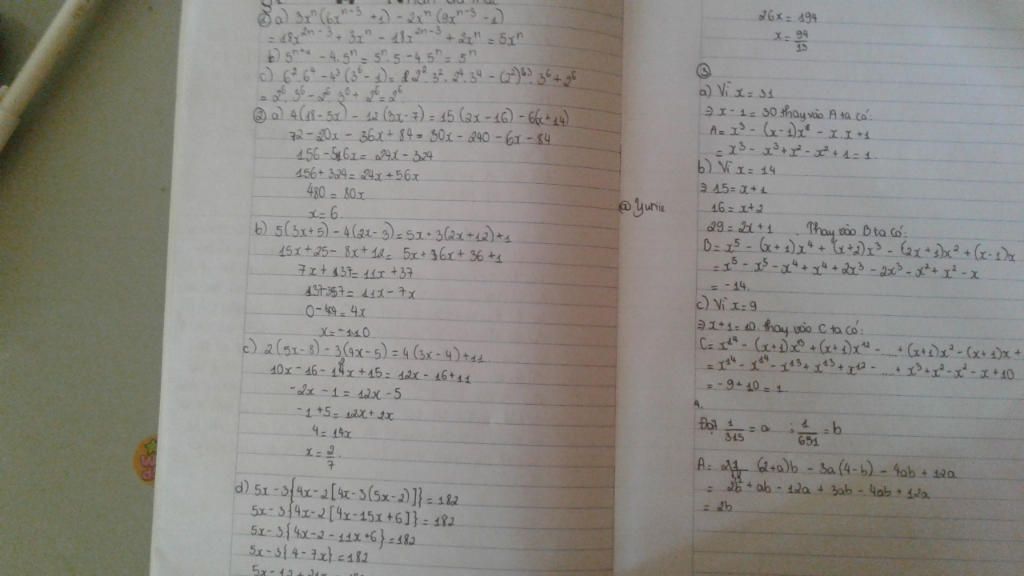 ① a) 3xⁿ(6xⁿ⁻³ + 1) - 2xⁿ(9xⁿ⁻³ - 1)
= 18x²ⁿ⁻³ + 3xⁿ - 18x²ⁿ⁻³ + 2xⁿ = 5xⁿ
b) 5ⁿ⁺¹ - 4.5ⁿ = 5ⁿ.5 - 4.5ⁿ = 5ⁿ
c) 6².6⁴ - 4³(3⁶ - 1) = 2².3².2⁴.3⁴ - (2²)³.3⁶ + 2⁶
= 2⁶.3⁶ - 2⁶.3⁶ + 2⁶ = 2⁶
② a) 4(18 - 5x) - 12(3x - 7) = 15(2x - 16) - 6(x + 14)
72 - 20x - 36x + 84 = 30x - 240 - 6x - 84
156 - 56x = 24x - 324
156 + 324 = 24x + 56x
480 = 80x
x = 6
b) 5(3x + 5) - 4(2x - 3) = 5x + 3(2x + 12) + 1
15x + 25 - 8x + 12 = 5x + 36 + 1
7x + 37 = 11x + 37
= 11x - 7x
= 4x
c) 2(5x - 8) - 3(4x - 5) = 4(3x - 4) + 11
10x - 16 - 12x + 15 = 12x - 16 + 11
-2x - 1 = 12x - 5
-1 + 5 = 12x + 2x
4 = 14x
x = 2/7
d) 5x - 3{4x - 2[4x - 3(5x - 2)]} = 182
5x - 3{4x - 2[4x - 15x + 6]} = 182
5x - 3{4x - 2 - 11x + 6} = 182
5x - 3{4 - 7x} = 182
@ Yuriu
26x = 194
③
a) Vì x = 31
⇒ x - 1 = 30 thay vào A ta có:
A = x³ - (x - 1)x² - x.x + 1
= x³ - x³ + x² - x² + 1 = 1.
b) Vì x = 14
⇒ 15 = x + 1
16 = x + 2
29 = 2x + 1 Thay vào B ta có:
B = x⁵ - (x + 1)x⁴ + (x + 2)x³ - (2x + 1)x² + (x - 1)x
= x⁵ - x⁵ - x⁴ + x⁴ + 2x³ - 2x³ - x² + x² - x
= -14.
c) Vì x = 9
⇒ x + 1 = 10. thay vào C ta có:
C = x¹⁴ - (x + 1)x¹³ + (x + 1)x¹² - ... + (x + 1)x² - (x + 1)x +
= x¹⁴ - x¹⁴ - x¹³ + x¹³ + x¹² - ... + x³ + x² - x² - x + 10
= -9 + 10 = 1
4.
Đặt 1/315 = a ; 1/651 = b
A = (2 + a)b - 3a(4 - b) - 4ab + 12a
= 2b + ab - 12a + 3ab - 4ab + 12a
= 2b